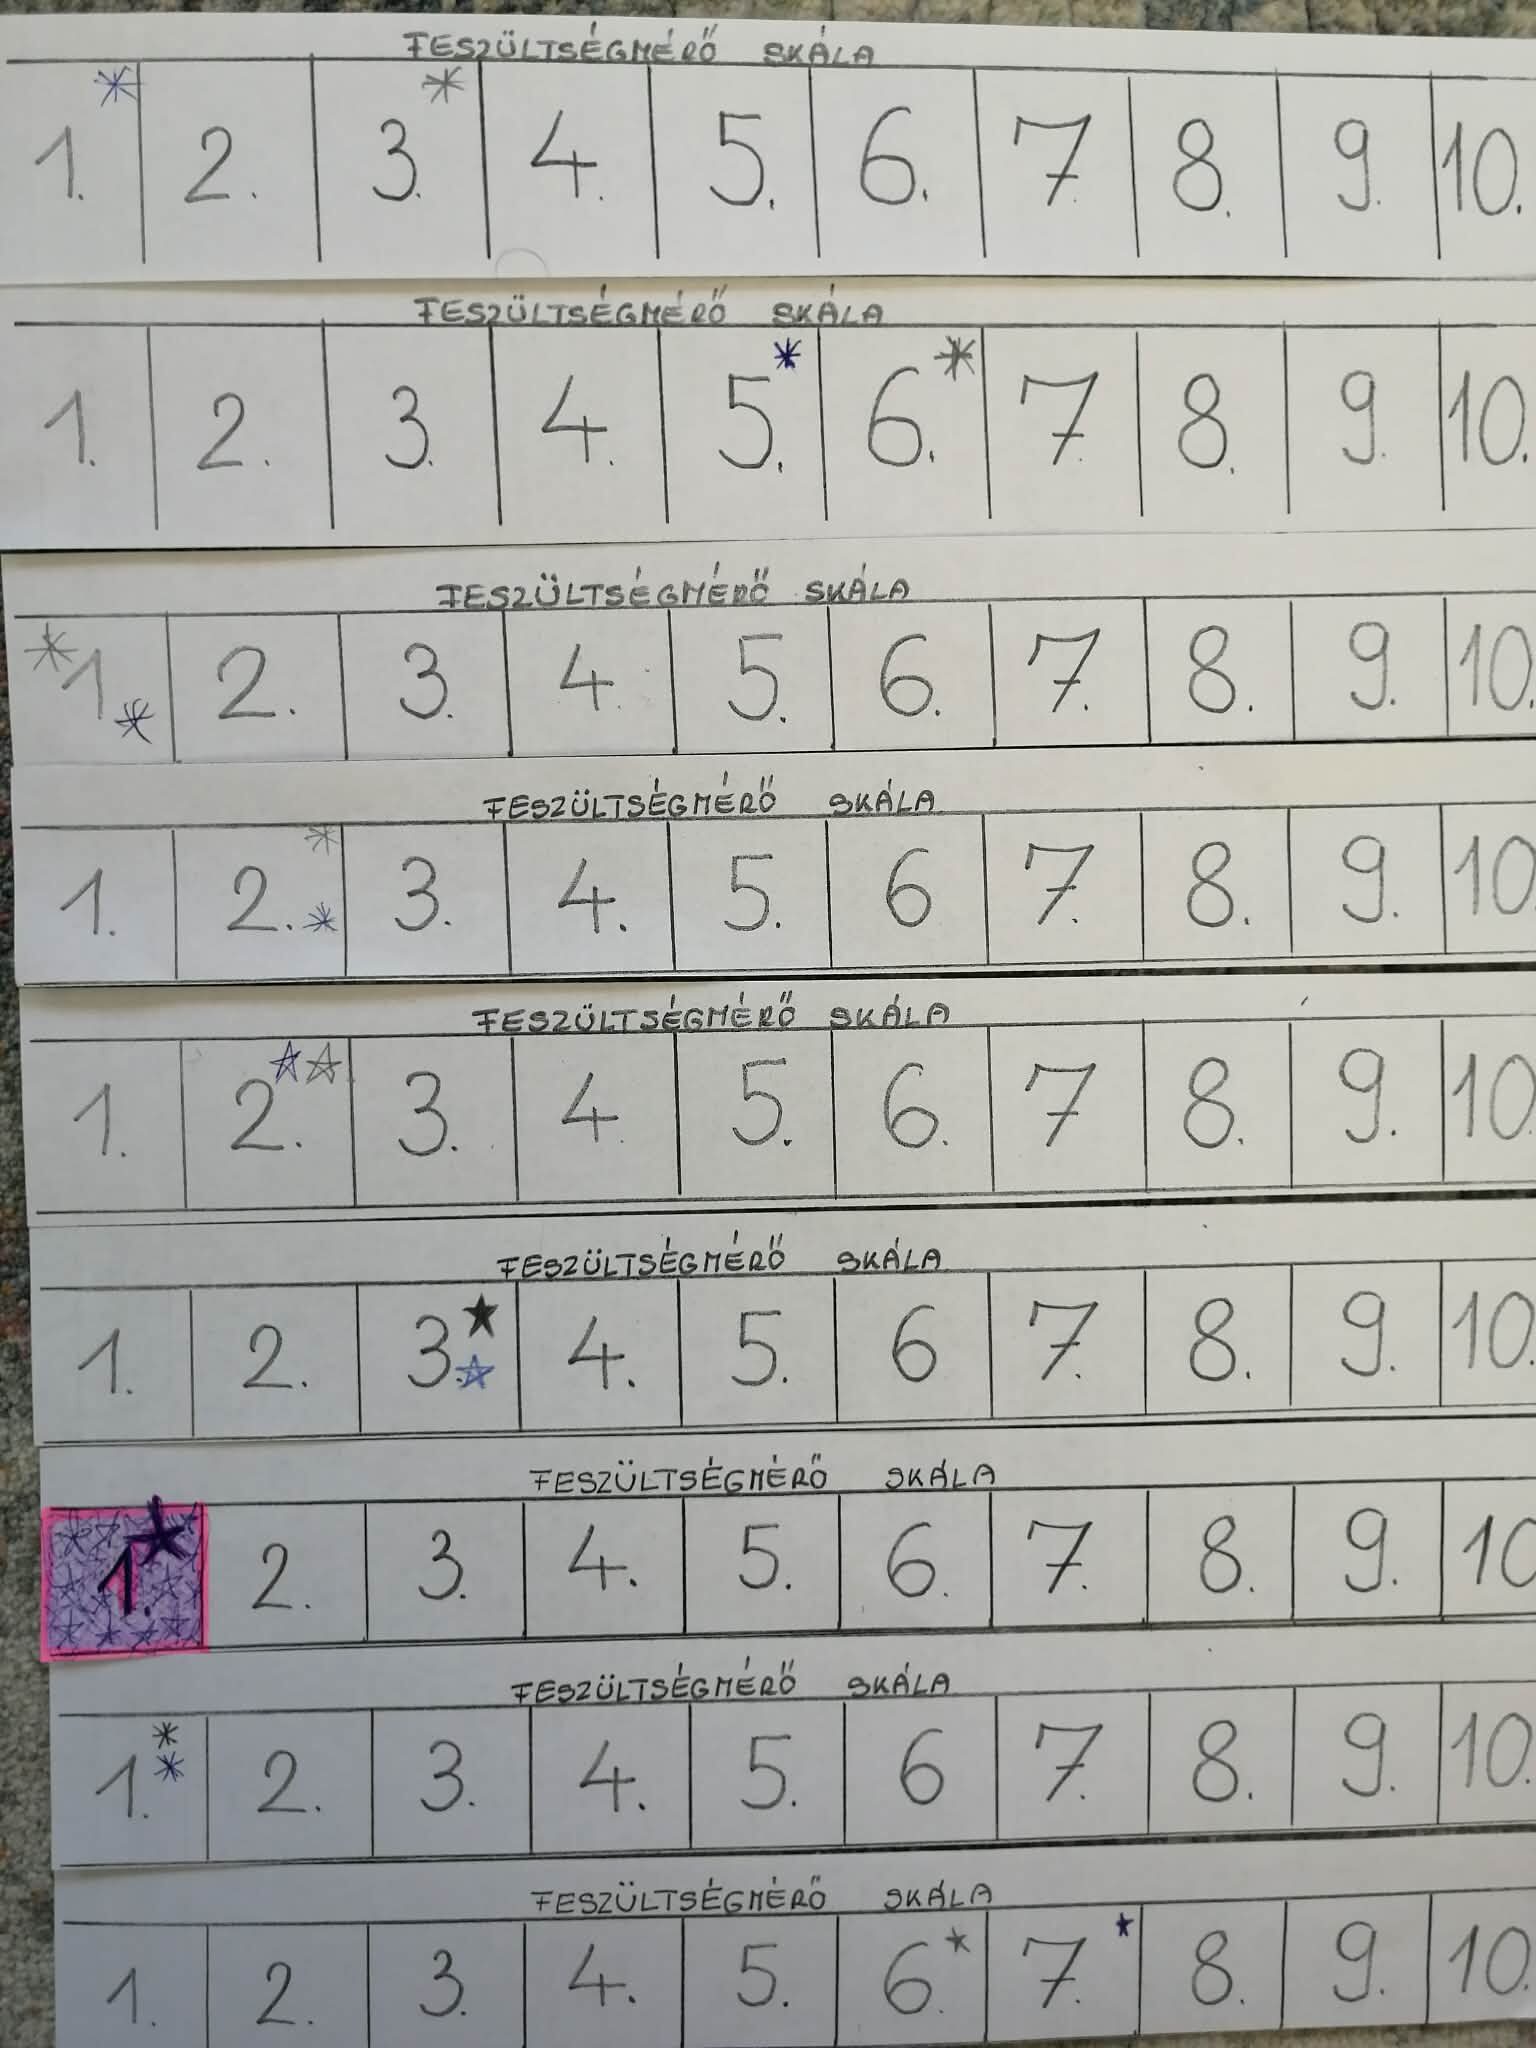 FESZÜLTSÉGMÉRŐ SKÁLA
1. 2. 3. 4. 5. 6. 7. 8. 9. 10.
FESZÜLTSÉGMÉRŐ SKÁLA
1. 2. 3. 4. 5. 6. 7. 8. 9. 10.
FESZÜLTSÉGMÉRŐ SKÁLA
1. 2. 3. 4. 5. 6. 7. 8. 9. 10.
FESZÜLTSÉGMÉRŐ SKÁLA
1. 2. 3. 4. 5. 6 7. 8. 9. 10
FESZÜLTSÉGMÉRŐ SKÁLA
1. 2. 3. 4. 5. 6. 7 8. 9. 10.
FESZÜLTSÉGMÉRŐ SKÁLA
1. 2. 3. 4. 5. 6 7. 8. 9. 10.
FESZÜLTSÉGMÉRŐ SKÁLA
1. 2. 3. 4. 5. 6. 7. 8. 9. 10
FESZÜLTSÉGMÉRŐ SKÁLA
1. 2. 3. 4. 5. 6 7. 8. 9. 10.
FESZÜLTSÉGMÉRŐ SKÁLA
1. 2. 3. 4. 5. 6. 7. 8. 9. 10.